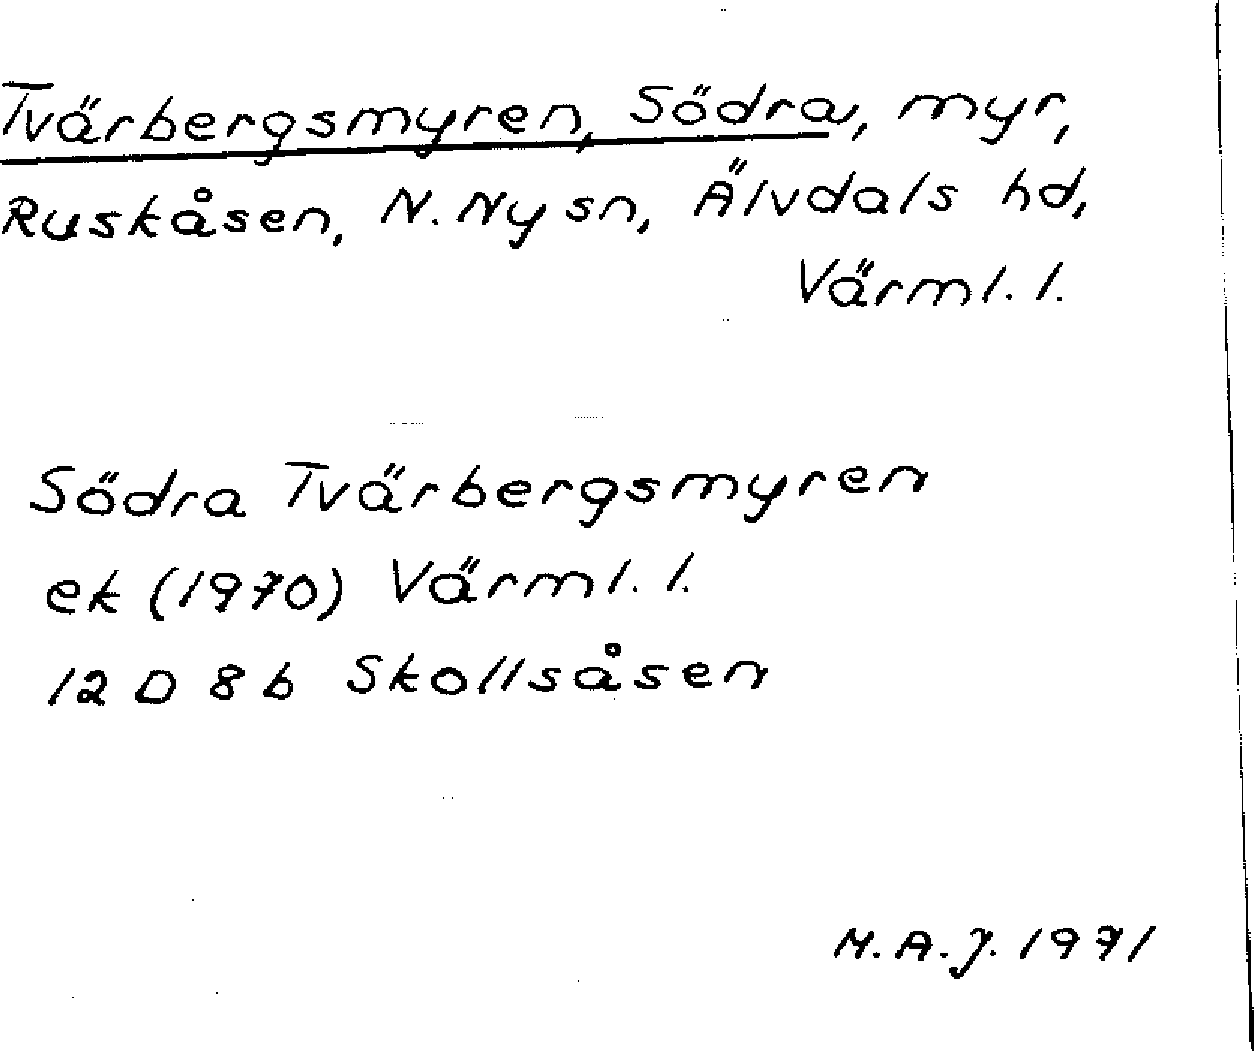 Tvärbergsmyren, Södra, myr,
Ruskåsen, N. Ny sn, Älvdals hd,
Värml. l.
Södra Tvärbergsmyren
ek (1970) Värml. l.
12 D 8 b Skollsåsen
M. A. J. 1971